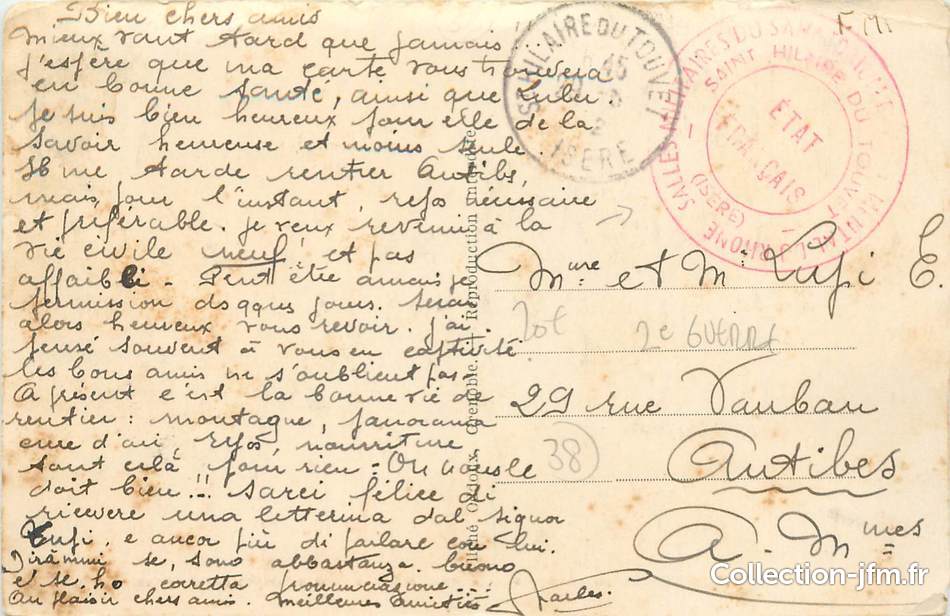 Bien chers amis
Mieux vaut tard que jamais
j'espère que ma carte vous trouvera
en bonne santé, ainsi que
Je suis bien heureux pour elle de la
savoir heureuse et moins seule.
Il me tarde rentrer Antibes,
mais pour l'instant, repos nécessaire
et préférable. je veux revenir à la
vie civile neuf, et pas
affaibli - Peut être aurais je
permission de qques jours. Serai
alors heureux vous revoir. j'ai
pensé souvent à vous en captivité
les bons amis ne s'oublient pas
A présent c'est la bonne vie de
rentier: montagne, panorama
cure d'air, repos, nourriture
tout cela, pour rien - On nous le
doit bien!! Sarei felice di
ricevere una letterina dal signor
Lupi, e ancor più di parlare con lui.
Dirammi se, sono abbastanza buono
e se ho corretta pronunciazione...
Au plaisir chers amis. Meilleures amitiés
Charles.
F M
ST HILAIRE DU TOUVET
ISÈRE
SALLES MILITAIRES DU SANATORIUM
RHÔNE
SAINT HILAIRE DU TOUVET
(ISÈRE)
ÉTAT
FRANÇAIS
Mme et Mr Lupi E.
20€
2e GUERRE
29 rue Vauban
38
Antibes
A. Mmes
Grenoble. - Reproduction interdite.
Collection-jfm.fr